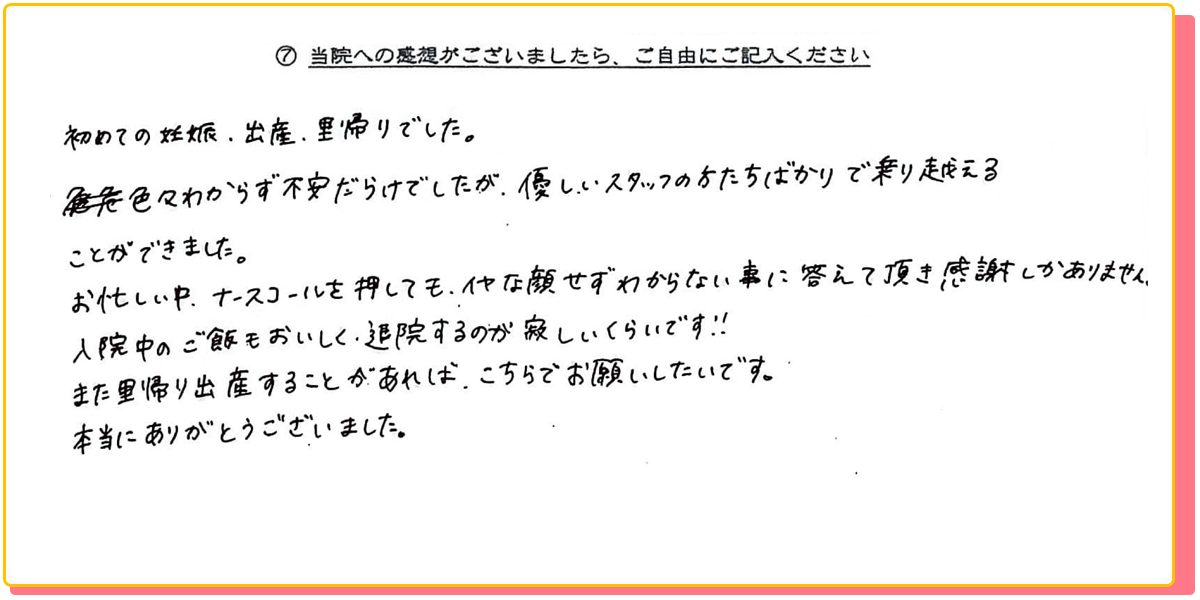 ⑦ 当院への感想がございましたら、ご自由にご記入ください
初めての妊娠、出産、里帰りでした。
色々わからず不安だらけでしたが、優しいスタッフの方たちばかりで乗り越える
ことができました。
お忙しい中、ナースコールを押しても、イヤな顔せずわからない事に答えて頂き感謝しかありません。
入院中のご飯もおいしく、退院するのが寂しいくらいです!!
また里帰り出産することがあれば、こちらでお願いしたいです。
本当にありがとうございました。